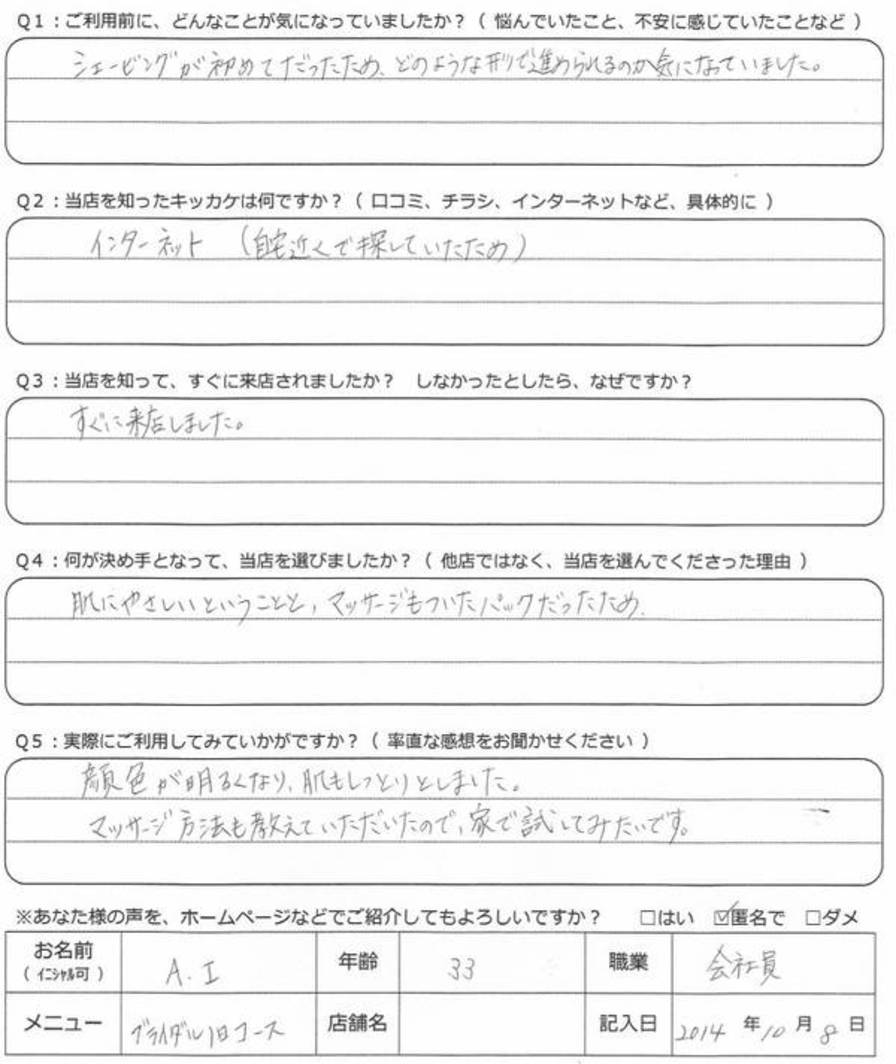 Q1：ご利用前に、どんなことが気になっていましたか？（ 悩んでいたこと、不安に感じていたことなど ）
シェービングが初めてだったため、どのような形で進められるのか気になっていました。
Q2：当店を知ったキッカケは何ですか？（ 口コミ、チラシ、インターネットなど、具体的に ）
インターネット （自宅近くで探していたため）
Q3：当店を知って、すぐに来店されましたか？ しなかったとしたら、なぜですか？
すぐに来店しました。
Q4：何が決め手となって、当店を選びましたか？（ 他店ではなく、当店を選んでくださった理由 ）
肌にやさしいということと、マッサージもついたパックだったため、
Q5：実際にご利用してみていかがですか？（ 率直な感想をお聞かせください ）
顔色が明るくなり、肌もしっとりとしました。
マッサージ方法も教えていただいたので、家で試してみたいです。
※あなた様の声を、ホームページなどでご紹介してもよろしいですか？ □はい ☑匿名で □ダメ
お名前（ｲﾆｼｬﾙ可） A.I 年齢 33 職業 会社員
メニュー ブライダル1日コース 店舗名 記入日 2014 年 10 月 8 日